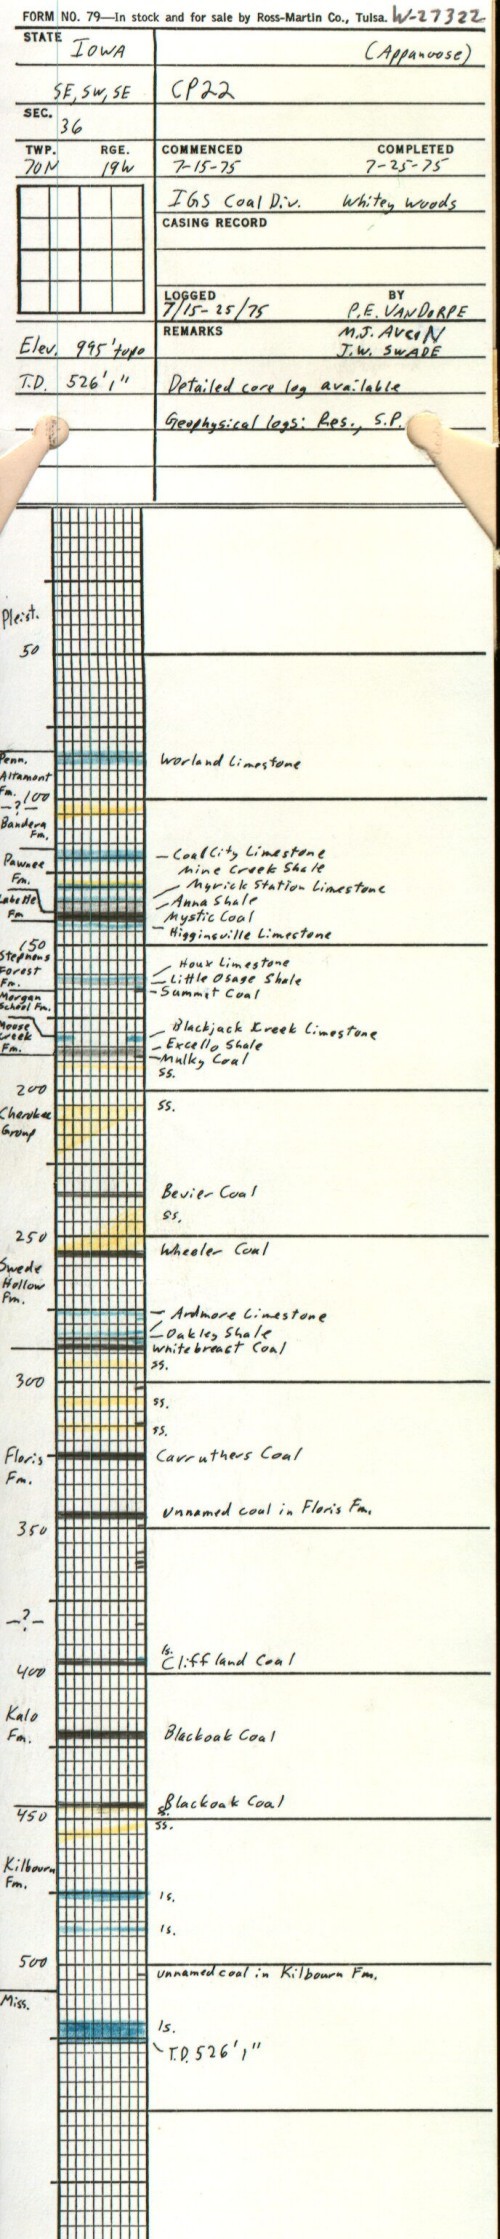 FORM NO. 79—In stock and for sale by Ross-Martin Co., Tulsa. W-27322
STATE Iowa (Appanoose)
SE, SW, SE CP22
SEC. 36
TWP. RGE. COMMENCED COMPLETED
70N 19W 7-15-75 7-25-75
IGS Coal Div. Whitey Woods
CASING RECORD
LOGGED BY
7/15-25/75 P.E. VANDORPE
REMARKS M.J. AvciN
Elev. 995' topo J.W. SWADE
T.D. 526'1" Detailed core log available
Geophysical logs: Res., S.P.
Pleist.
50
Penn. Worland Limestone
Altamont
Fm. 100
—?—
Bandera
Fm.
Coal City Limestone
Pawnee Mine Creek Shale
Fm. Myrick Station Limestone
Labette Anna Shale
Fm Mystic Coal
Higginsville Limestone
150
Stephens Houx Limestone
Forest Little Osage Shale
Fm. Summit Coal
Morgan
School Fm.
Moose Blackjack Creek Limestone
Creek Excello Shale
Fm. Mulky Coal
ss.
200
Cherokee ss.
Group
Bevier Coal
ss.
250
Wheeler Coal
Swede
Hollow
Fm.
Ardmore Limestone
Oakley Shale
Whitebreast Coal
ss.
300
ss.
ss.
Floris Carruthers Coal
Fm.
unnamed coal in Floris Fm.
350
—?—
ls.
Cliffland Coal
400
Kalo
Fm. Blackoak Coal
Blackoak Coal
450 ss.
ss.
Kilbourn
Fm.
ls.
ls.
500
unnamed coal in Kilbourn Fm.
Miss.
ls.
T.D. 526'1"